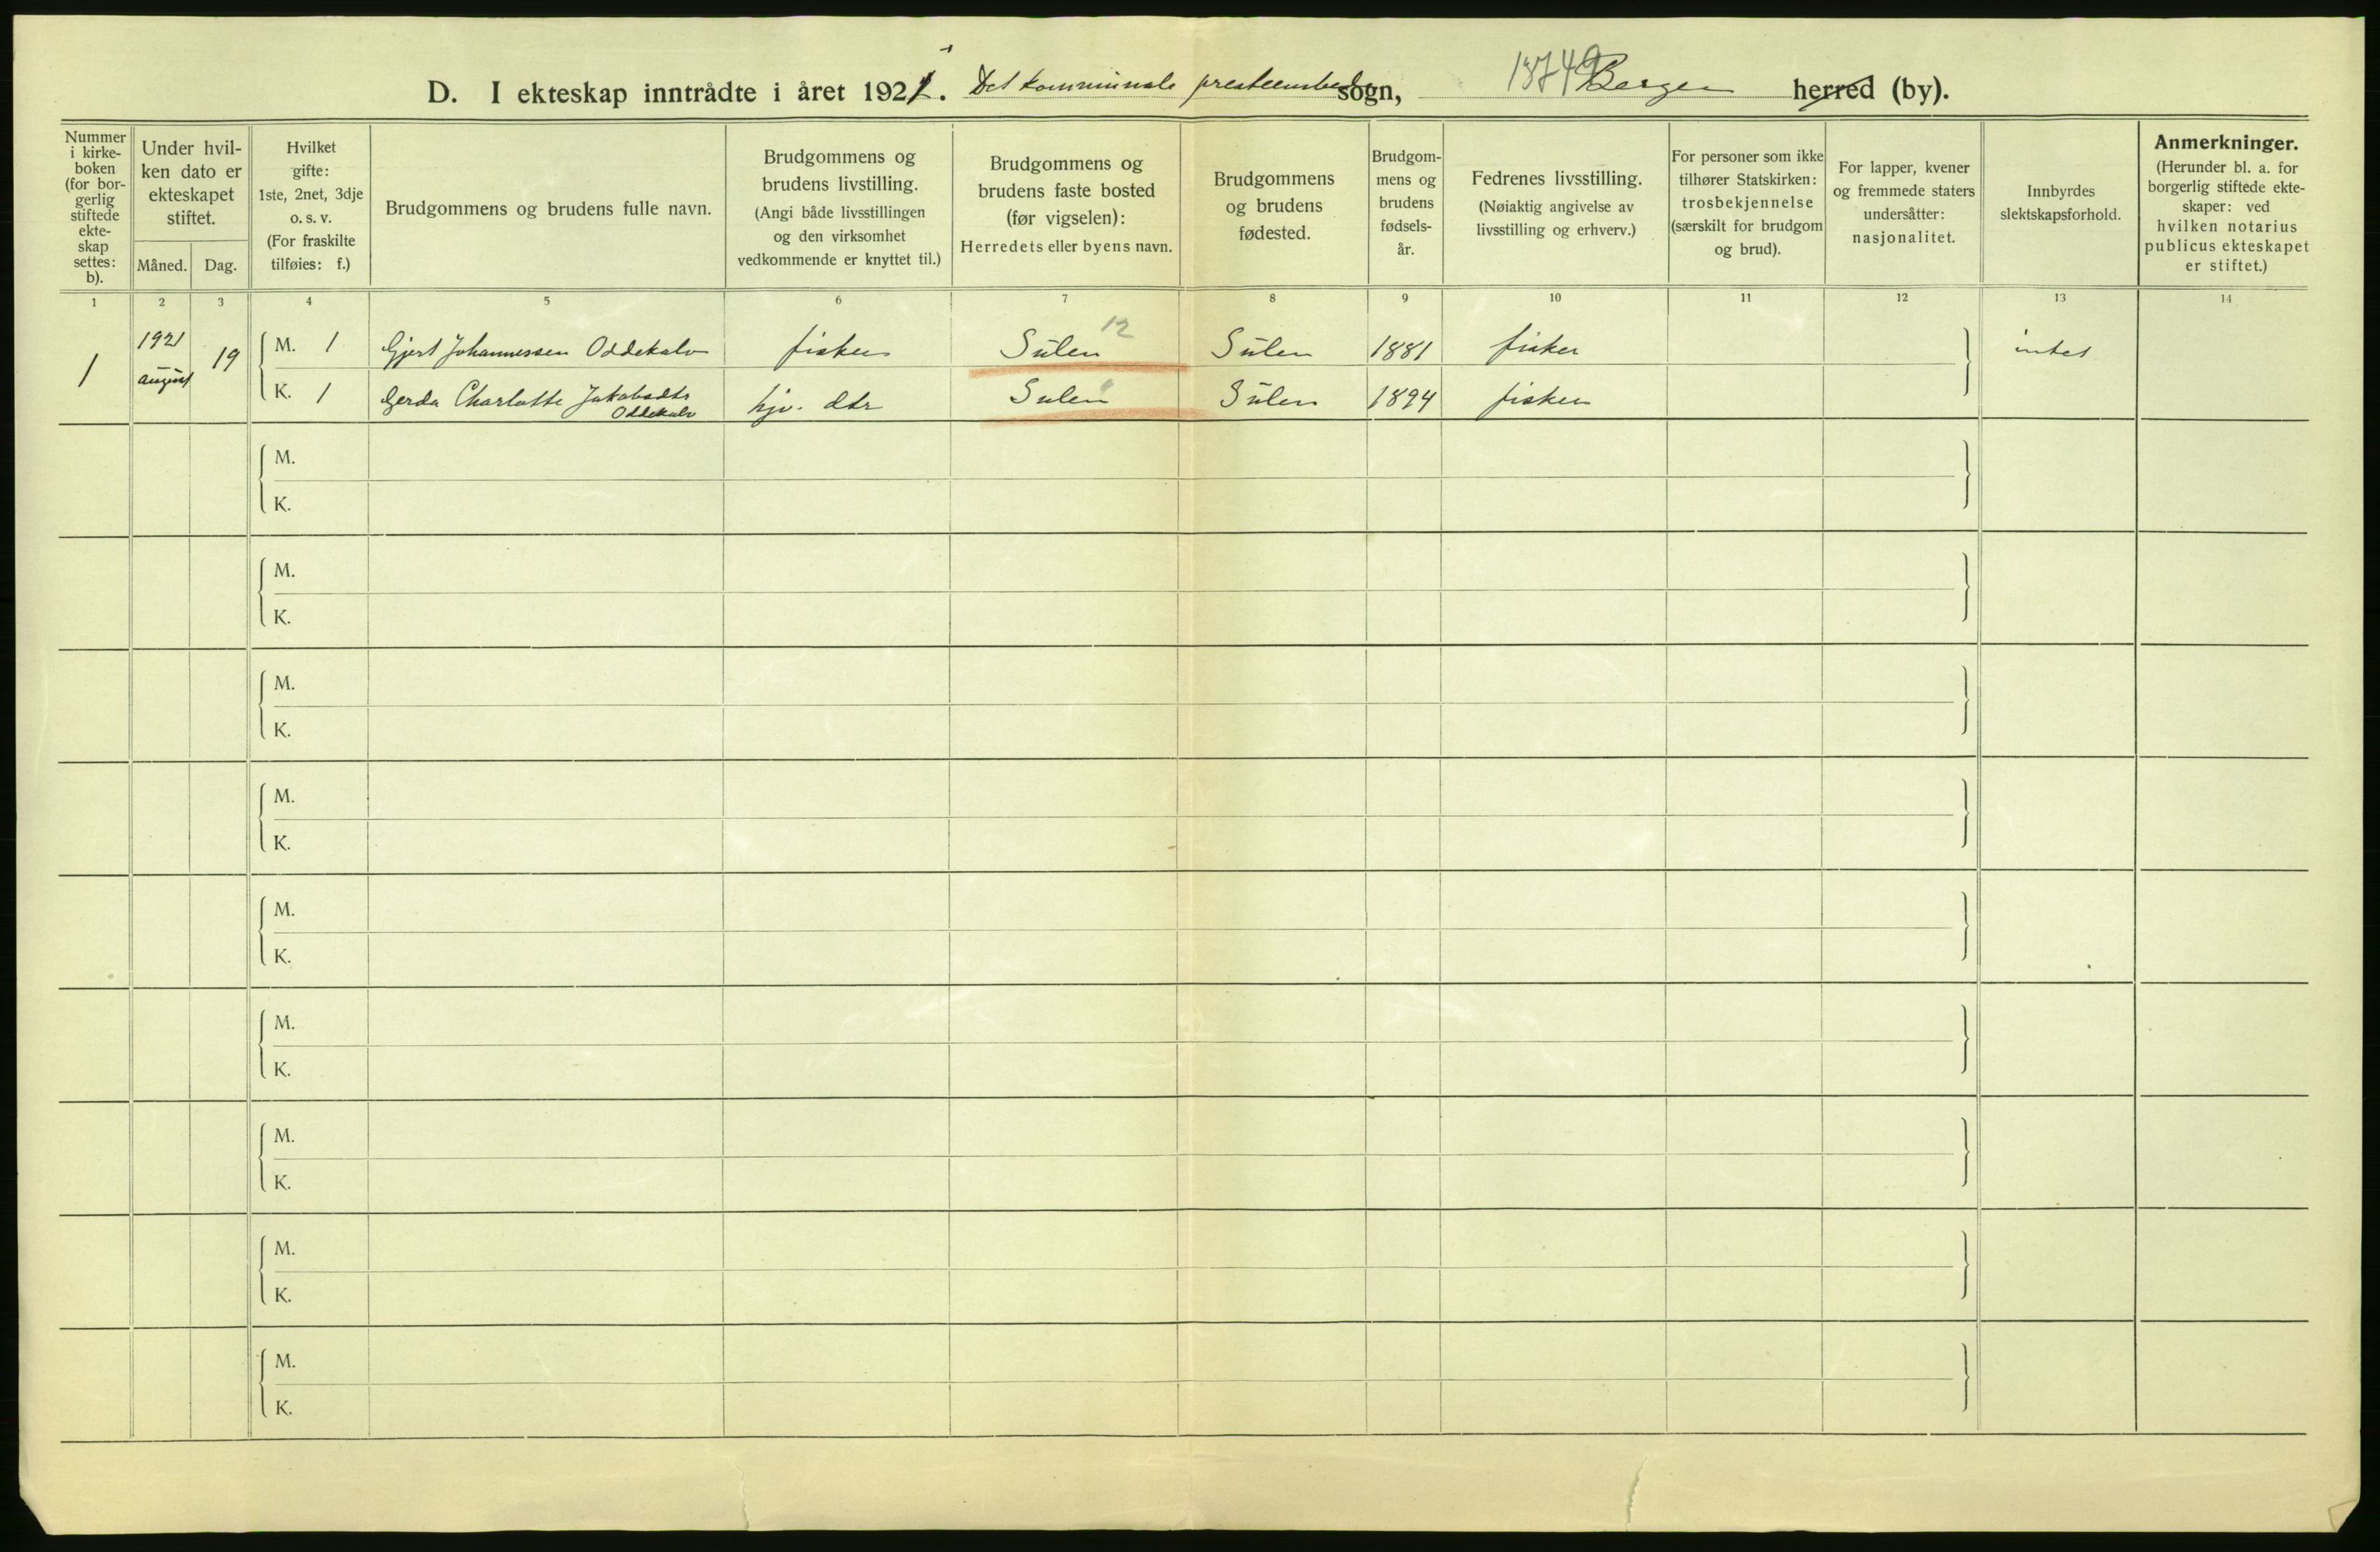 D. I ekteskap inntrådte i året 1921. Det kommunale presteembede sogn, 18749 Bergen herred (by).
Nummer i kirke- boken (for bor- gerlig stiftede ekte- skap settes: b).
Under hvil- ken dato er ekteskapet stiftet.
Måned. Dag.
Hvilket gifte: 1ste, 2net, 3dje o. s. v. (For fraskilte tilføies: f.)
Brudgommens og brudens fulle navn.
Brudgommens og brudens livstilling. (Angi både livsstillingen og den virksomhet vedkommende er knyttet til.)
Brudgommens og brudens faste bosted (før vigselen): Herredets eller byens navn.
Brudgommens og brudens fødested.
Brudgom- mens og brudens fødsels- år.
Fedrenes livsstilling. (Nøiaktig angivelse av livsstilling og erhverv.)
For personer som ikke tilhører Statskirken: trosbekjennelse (særskilt for brudgom og brud).
For lapper, kvener og fremmede staters undersåtter: nasjonalitet.
Innbyrdes slektskapsforhold.
Anmerkninger. (Herunder bl. a. for borgerlig stiftede ekte- skaper: ved hvilken notarius publicus ekteskapet er stiftet.)
1 2 3 4 5 6 7 8 9 10 11 12 13 14
1 1921 august 19 M. 1 Gjert Johannessen Oddekalv fisker Sulen 12 Sulen 1881 fisker intet
K. 1 Gerda Charlotte Jakobsdtr Oddekalv hjv. dtr Sulen Sulen 1894 fisker
M.
K.
M.
K.
M.
K.
M.
K.
M.
K.
M.
K.
M.
K.
M.
K.
M.
K.